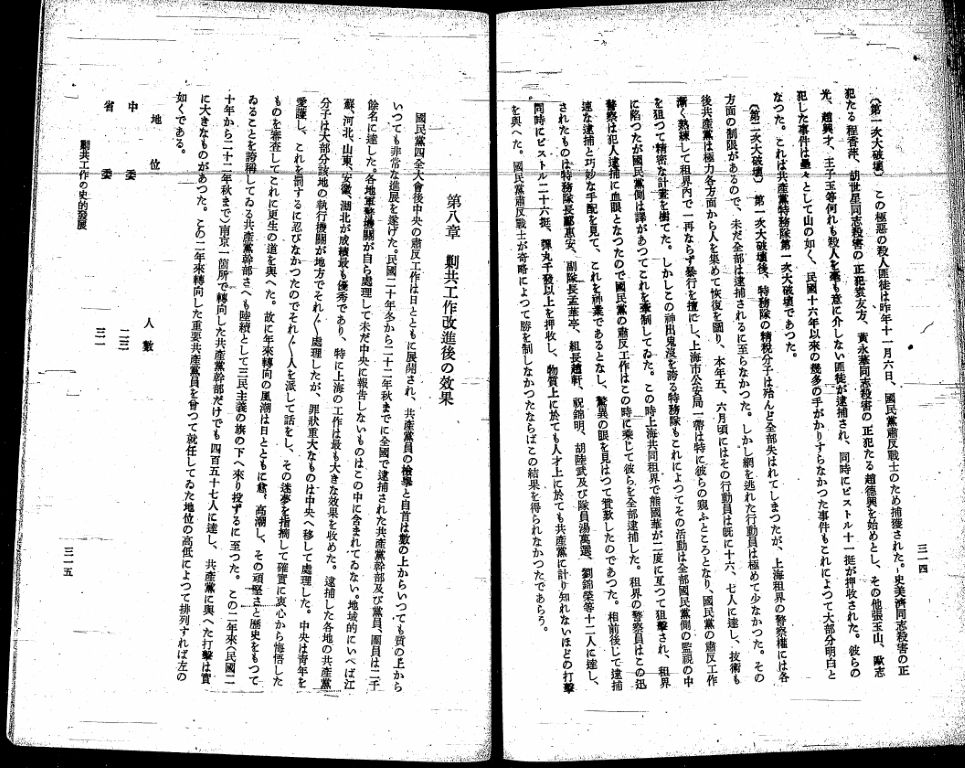 三一四
(第一次大破壞) この極惡の殺人匪徒は昨年十一月六日、國民黨肅反戰士のため捕獲された。史美濟同志殺害の正
犯たる程香洋、胡世星同志殺害の正犯袁友方、黃永華同志殺害の正犯たる趙德興を始めとし、その他張玉山、歐志
光、趙興才、王子玉等何れも殺人を毫も意に介しない匪徒が逮捕され、同時にピストル十一挺が押收された。彼らの
犯した事件は壘々として山の如く、民國十六年以來の幾多の手がかりすらなかつた事件もこれによつて大部分明白と
なつた。これは共產黨特務隊第一次大破壞であつた。
(第二次大破壞) 第一次大破壞後、特務隊の精銳分子は殆んど全部失はれてしまつたが、上海租界の警察權には各
方面の制限があるので、未だ全部は逮捕されるに至らなかつた。しかし網を逃れた行動員は極めて少なかつた。その
後共產黨は極力各方面から人を集めて恢復を圖り、本年五、六月頃にはその行動員は既に十六、七人に達し、技術も
漸く熟練して租界內で一再ならず暴行を擅にし、上海市公安局一帶は特に彼らの覘ふところとなり、國民黨の肅反工作
を狙つて精密な計畫を樹てた。しかしこの神出鬼沒を誇る特務隊もこれによつてその活動は全部國民黨側の監視の中
に陷つたが國民黨側は譯があつてこれを牽制してゐた。この時上海共同租界で熊國華が二度に亙つて狙擊され、租界
警察は犯人逮捕に血眼となつたので國民黨の肅反工作はこの時に乘じて彼らを全部逮捕した。租界の警察員はこの迅
速な逮捕と巧妙な手配を見て、これを神業であるとなし、驚異の眼を見はつて贊歎したのであつた。相前後して逮捕
されたものは特務隊長鄺惠安、副隊長孟華亭、組長趙軒、祝錦明、胡陸武及び隊員湯萬選、劉錦榮等十二人に達し、
同時にピストル二十六挺、彈丸千發以上を押收し、物質上に於ても人才上に於ても共產黨に計り知れないほどの打擊
を與へた。國民黨肅反戰士が奇略によつて勝を制しなかつたならばこの結果を得られなかつたであらう。
第八章 剿共工作改進後の效果
國民黨四全大會後中央の肅反工作は日とともに展開され、共產黨員の檢擧と自首は數の上からいつても質の上から
いつても非常な進展を遂げた。民國二十年冬から二十二年秋までに全國で逮捕された共產黨幹部及び黨員、團員は二千
餘名に達した。各地軍警機關が自ら處理して未だ中央に報告しないものはこの中に含まれてゐない。地域的にいへば江
蘇、河北、山東、安徽、湖北が成績最も優秀であり、特に上海の工作は最も大きな效果を收めた。逮捕した各地の共產黨
分子は大部分該地の執行機關が地方でそれ〴〵處理したが、罪狀重大なものは中央へ移して處理した。中央は靑年を
愛護し、これを罰するに忍びなかつたのでそれ〴〵人を派して話をし、その迷夢を指摘して確實に衷心から悔悟した
ものを審査してこれに更生の道を與へた。故に年來轉向の風潮は日とともに愈、高潮し、その頑堅さと歷史をもつて
ゐることを誇稱してゐる共產黨幹部さへも陸續として三民主義の旗の下へ來り投ずるに至つた。この二年來(民國二
十年から二十二年秋まで)南京一箇所で轉向した共產黨幹部だけでも四百五十七人に達し、共產黨に與へた打擊は實
に大きなものがあつた。この二年來轉向した重要共產黨員を曾つて就任してゐた地位の高低によつて排列すれば左の
如くである。
地位 人數
中委 二三
省委 三一
剿共工作の史的發展
三一五